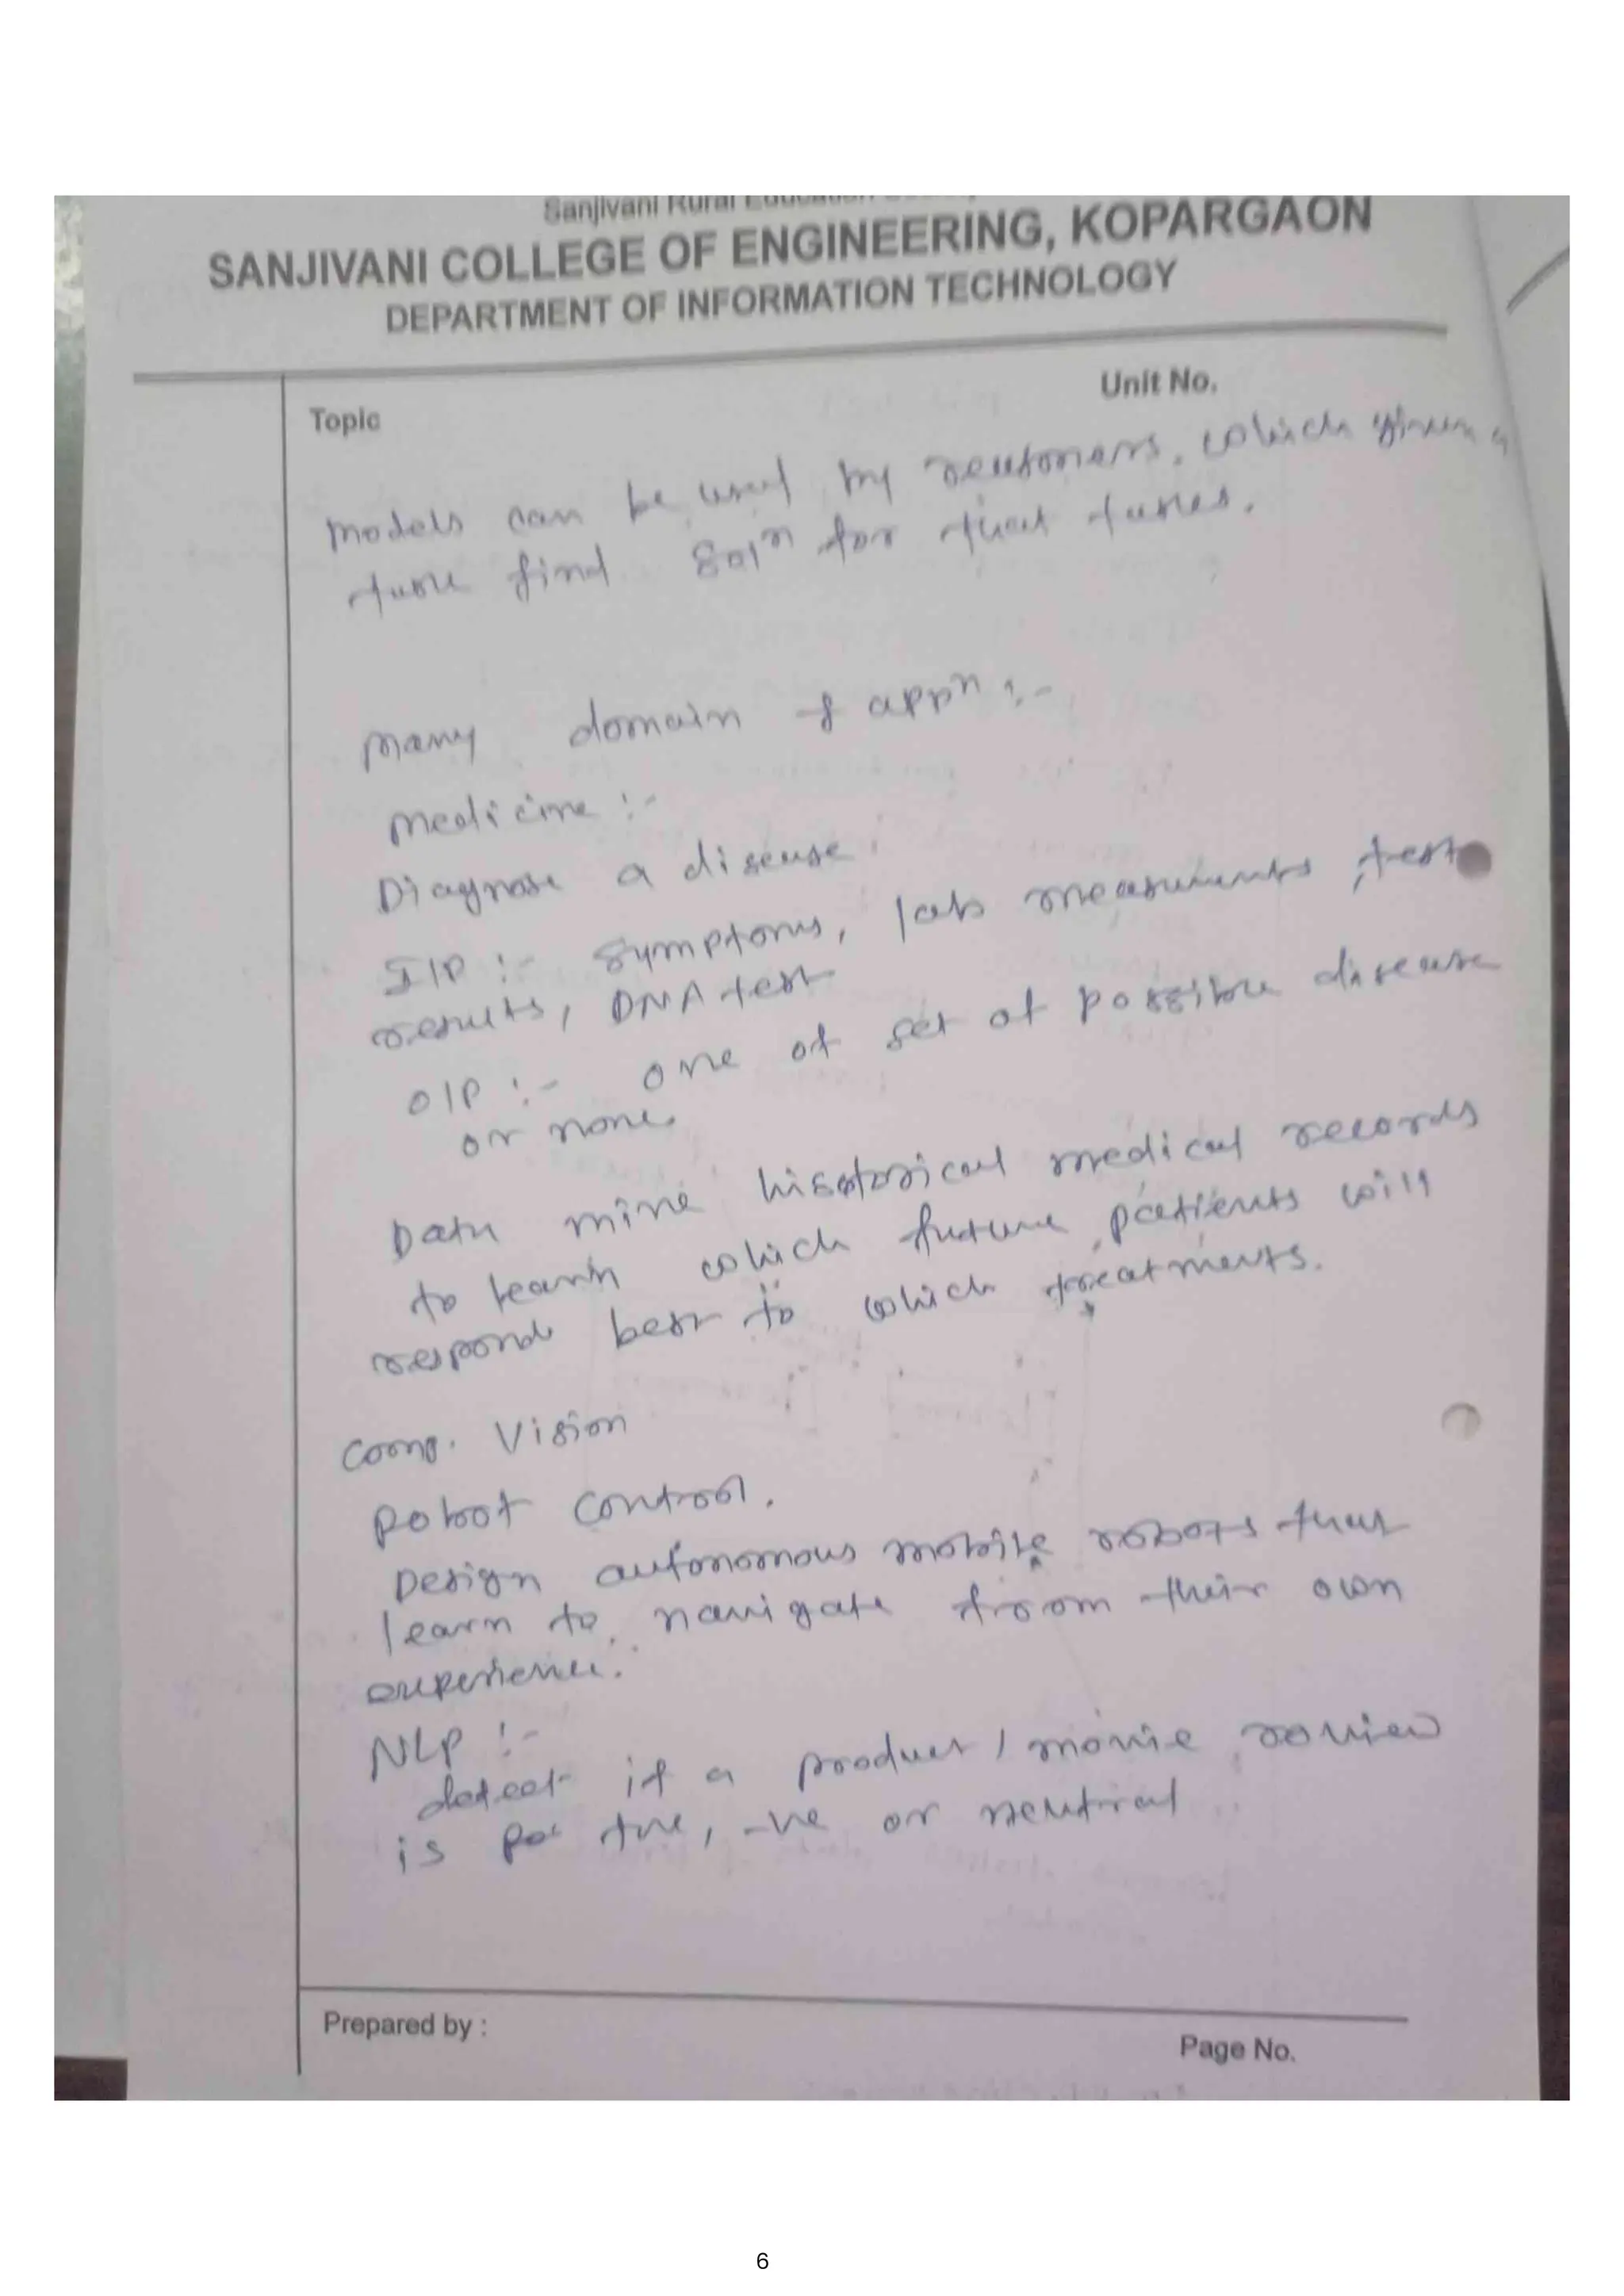 Sanjivani Rural Education
SANJIVANI COLLEGE OF ENGINEERING, KOPARGAON
DEPARTMENT OF INFORMATION TECHNOLOGY
Unit No.
Topic
Models can be used by reasoners, which given a
task find solⁿ for that tasks.
Many domain of appⁿ :-
Medicine :-
Diagnose a disease.
I/P :- Symptoms, lab measurements, test
results, DNA test
O/P :- One of set of possible disease
or none.
Data mine historical medical records
to learn which future patients will
respond best to which treatments.
Comp. Vision
Robot Control.
Design autonomous mobile robots that
learn to navigate from their own
experience.
NLP :-
detect if a product / movie review
is +ve, -ve or neutral
Prepared by :
Page No.
6